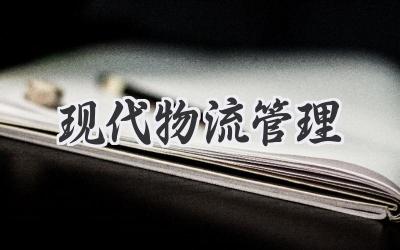 现代物流管理